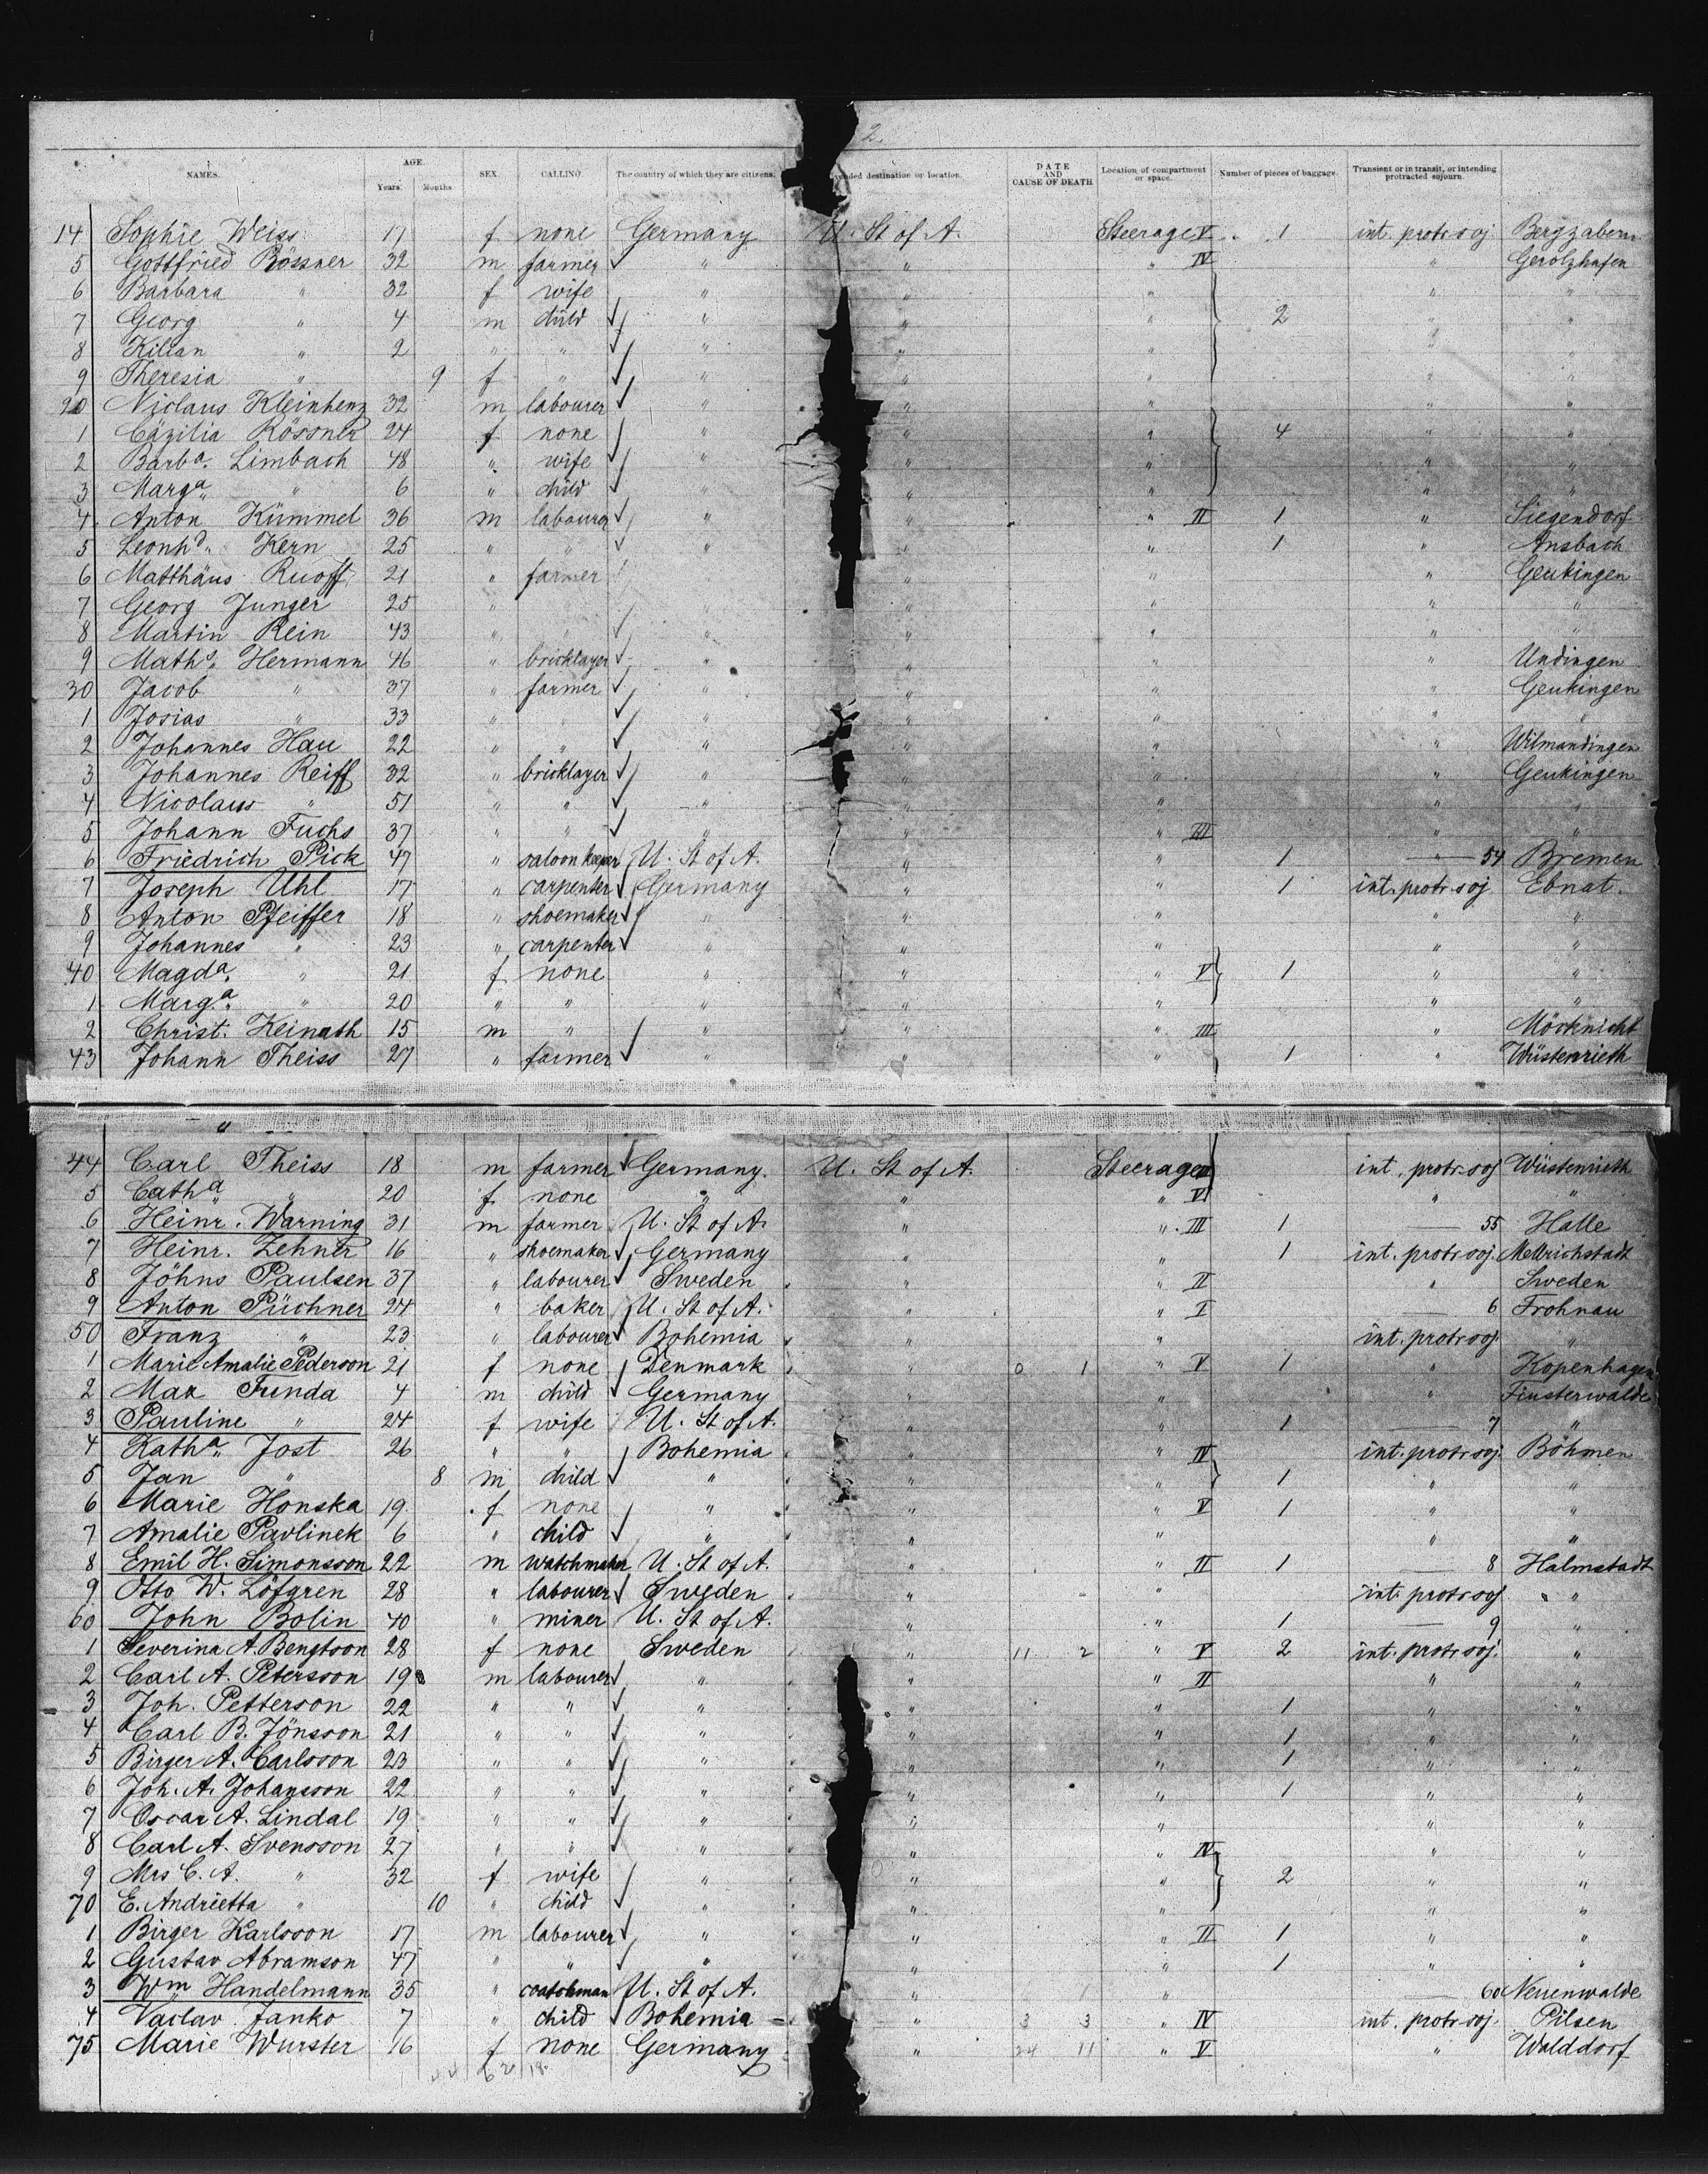 2
NAMES. AGE. Years. Months SEX CALLING The country of which they are citizens. nded destination or location. DATE AND CAUSE OF DEATH Location of compartment or space. Number of pieces of baggage. Transient or in transit, or intending protracted sojourn.
14 Sophie Weiss 17 f none Germany U. St of A. Steerage V 1 int. protr. soj Bergzabern
5 Gottfried Rössner 32 m farmer " " " IV " Gerolzhafen
6 Barbara " 32 f wife " " " " "
7 Georg " 4 m child " " " 2 " "
8 Kilian " 2 " " " " " " "
9 Theresia " 9 f " " " " " "
20 Niclaus Kleinhenz 32 m labourer " " " " "
1 Cäzilia Rössner 24 f none " " " 4 " "
2 Barba. Limbach 48 " wife " " " " "
3 Marga " 6 " child " " " " "
4 Anton Kümmel 36 m labourer " " " II 1 " Siegendorf
5 Leonhd. Kern 25 " " " " " 1 " Ansbach
6 Matthäus Ruoff 21 " farmer " " " Geukingen
7 Georg Junger 25 " " " " " " "
8 Martin Rein 43 " " " " " " "
9 Maths. Hermann 46 " bricklayer " " " " Undingen
30 Jacob " 37 " farmer " " " " Geukingen
1 Josias " 33 " " " " " " "
2 Johannes Hau 22 " " " " " " Wilmandingen
3 Johannes Reiff 32 " bricklayer " " " " Geukingen
4 Nicolaus " 51 " " " " " " "
5 Johann Fuchs 37 " " " " " III " "
6 Friedrich Pick 47 " saloon keeper U. St of A. " " 1 " 54 Bremen
7 Joseph Uhl 17 " carpenter Germany " " 1 int. protr. soj Ebnat.
8 Anton Pfeiffer 18 " shoemaker " " " " "
9 Johannes " 23 " carpenter " " " " "
40 Magda. " 21 f none " " " V 1 " "
1 Marga. " 20 " " " " " " "
2 Christ. Keinath 15 m " " " " III " Möcknicht
43 Johann Theiss 27 " farmer " " " 1 " Wüstenrieth
"
44 Carl Theiss 18 m farmer Germany. U. St of A. Steerage int. protr. soj Wüstenrieth
5 Catha " 20 f none " " " V " "
6 Heinr. Warning 31 m farmer U. St of A. " " III 1 55 Halle
7 Heinr. Zehner 16 " shoemaker Germany " " 1 int. protr. soj. Mellrichstadt
8 Jöhns Paulsen 37 " labourer Sweden " " II " Sweden
9 Anton Püchner 24 " baker U. St of A. " " I 6 Frohnau
50 Franz " 23 " labourer Bohemia " " int. protr. soj. "
1 Marie Amalie Pederson 21 f none Denmark " 0 1 " V 1 " Kopenhagen
2 Max Funda 4 m child Germany " " " Finsterwalde
3 Pauline " 24 f wife U. St of A. " " 1 7 "
4 Katha. Jost 26 " " Bohemia " " IV int. protr. soj. Böhmen
5 Jan " 8 m child " " " 1 " "
6 Marie Honska 19 f none " " " V 1 " "
7 Amalie Pavlinek 6 " child " " " " "
8 Emil H. Simonsson 22 m watchmaker U. St of A. " " II 1 8 Halmstadt
9 Otto W. Löfgren 28 " labourer Sweden " " int. protr. soj " "
60 John Bolin 40 " miner U. St of A. " " 1 9 "
1 Severina A. Bengtson 28 f none Sweden " 11 2 " V 2 int. protr. soj. "
2 Carl A. Petersson 19 m labourer " " " II " "
3 Joh. Petterson 22 " " " " " 1 " "
4 Carl B. Jönsson 21 " " " " " 1 " "
5 Birger A. Carlsson 23 " " " " " 1 " "
6 Joh. A. Johansson 22 " " " " " 1 " "
7 Oscar A. Lindal 19 " " " " " " "
8 Carl A. Svensson 27 " " " " " IV " "
9 Mrs C. A. " 32 f wife " " " 2 " "
70 E. Andrietta " 10 " child " " " " "
1 Birger Karlsson 17 m labourer " " " II 1 " "
2 Gustav Abramson 47 " " " " " 1 " "
3 Wm Handelmann 35 " coatchman U. St of A. " 1 " 60 Neuenwalde
4 Vaclav Janko 7 " child Bohemia " 3 3 " IV int. protr. soj. Pilsen
75 Marie Wurster 16 f none Germany " 24 11 " V " Walddorf